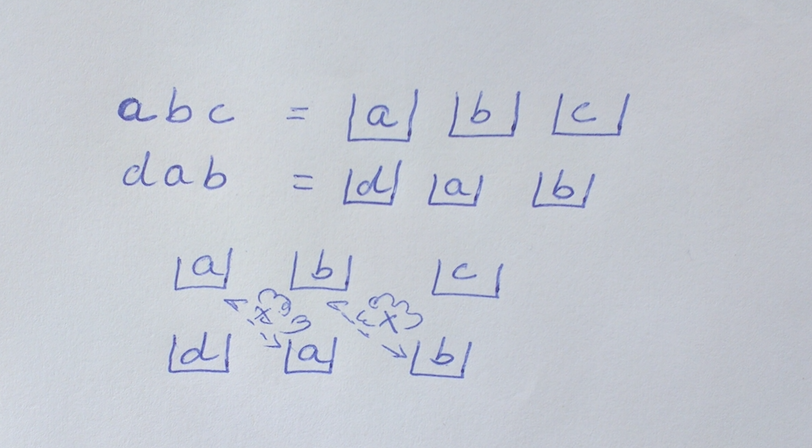 abc = a b c
dab = d a b
a b c
x x
d a b